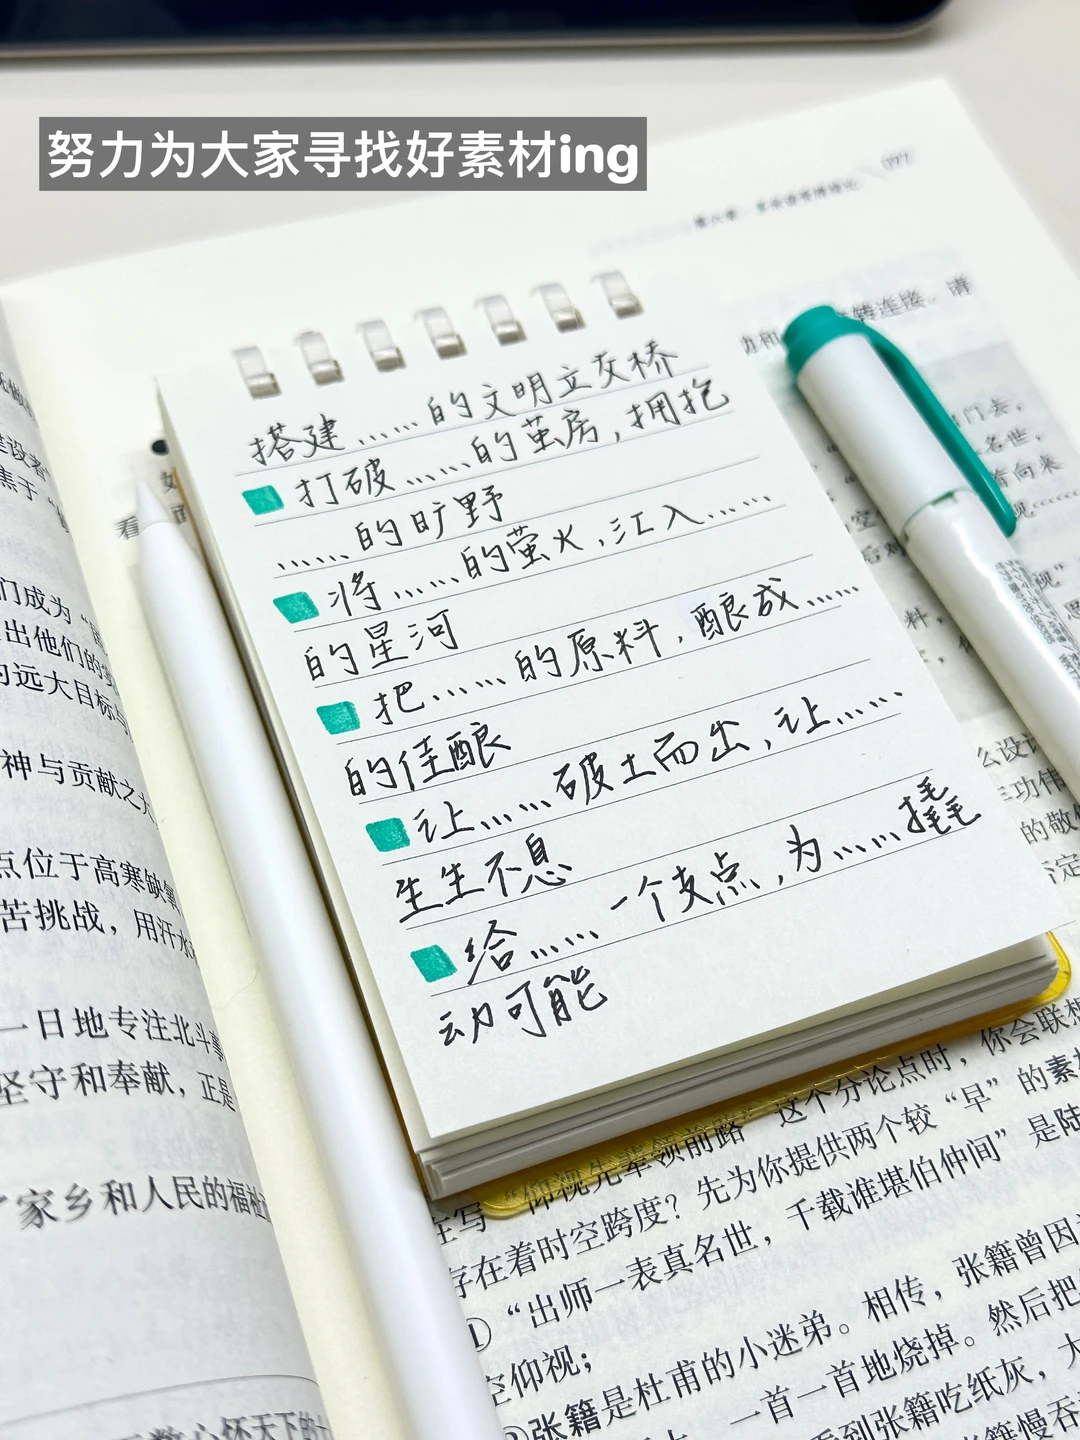 努力为大家寻找好素材ing
搭建……的文明立交桥
打破……的茧房，拥抱
……的旷野
将……的萤火，汇入……
的星河
把……的原料，酿成……
的佳酿
让……破土而出，让……
生生不息
给……一个支点，为……撬
动可能
们成为
出他们的
的远大目标与
神与贡献之
点位于高寒缺氧
苦挑战，用汗水
一日地专注北斗
坚守和奉献，正是
家乡和人民的福祉
心怀天下的
转连接。请
门去，
名世，
着向来
视……
后对
料，
么设计
功伟
的敬
否定
在写“仰视先辈领前路”这个分论点时，你会联想
存在着时空跨度？先为你提供两个较“早”的素材
①“出师一表真名世，千载谁堪伯仲间”是陆
空仰视；
②张籍是杜甫的小迷弟。相传，张籍曾因
一首一首地烧掉。然后把
看到张籍吃纸灰，大
张籍慢吞